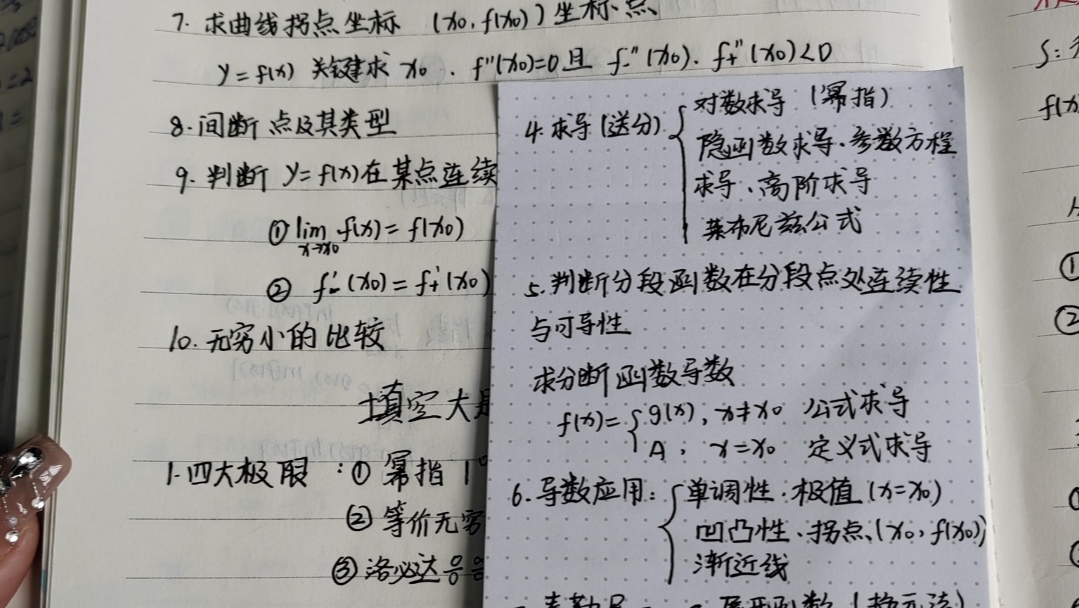 7. 求曲线拐点坐标 (x0, f(x0)) 坐标点
y=f(x) 关键求 x0. f''(x0)=0且 f-''(x0). f+''(x0)<0
8. 间断点及其类型
9. 判断 y=f(x)在某点连续
① lim x→x0 f(x)=f(x0)
② f-'(x0)=f+'(x0)
10. 无穷小的比较
填空大
1. 四大极限:① 幂指 1
② 等价无穷
③ 洛必达
4. 求导(送分) 对数求导 (幂指)
隐函数求导、参数方程
求导、高阶求导
莱布尼兹公式
5. 判断分段函数在分段点处连续性
与可导性
求分断函数导数
f(x)={ g(x), x≠x0 公式求导
A, x=x0 定义式求导
6. 导数应用:{ 单调性. 极值 (x=x0)
凹凸性、拐点、(x0, f(x0))
渐近线
f(x)
①
②